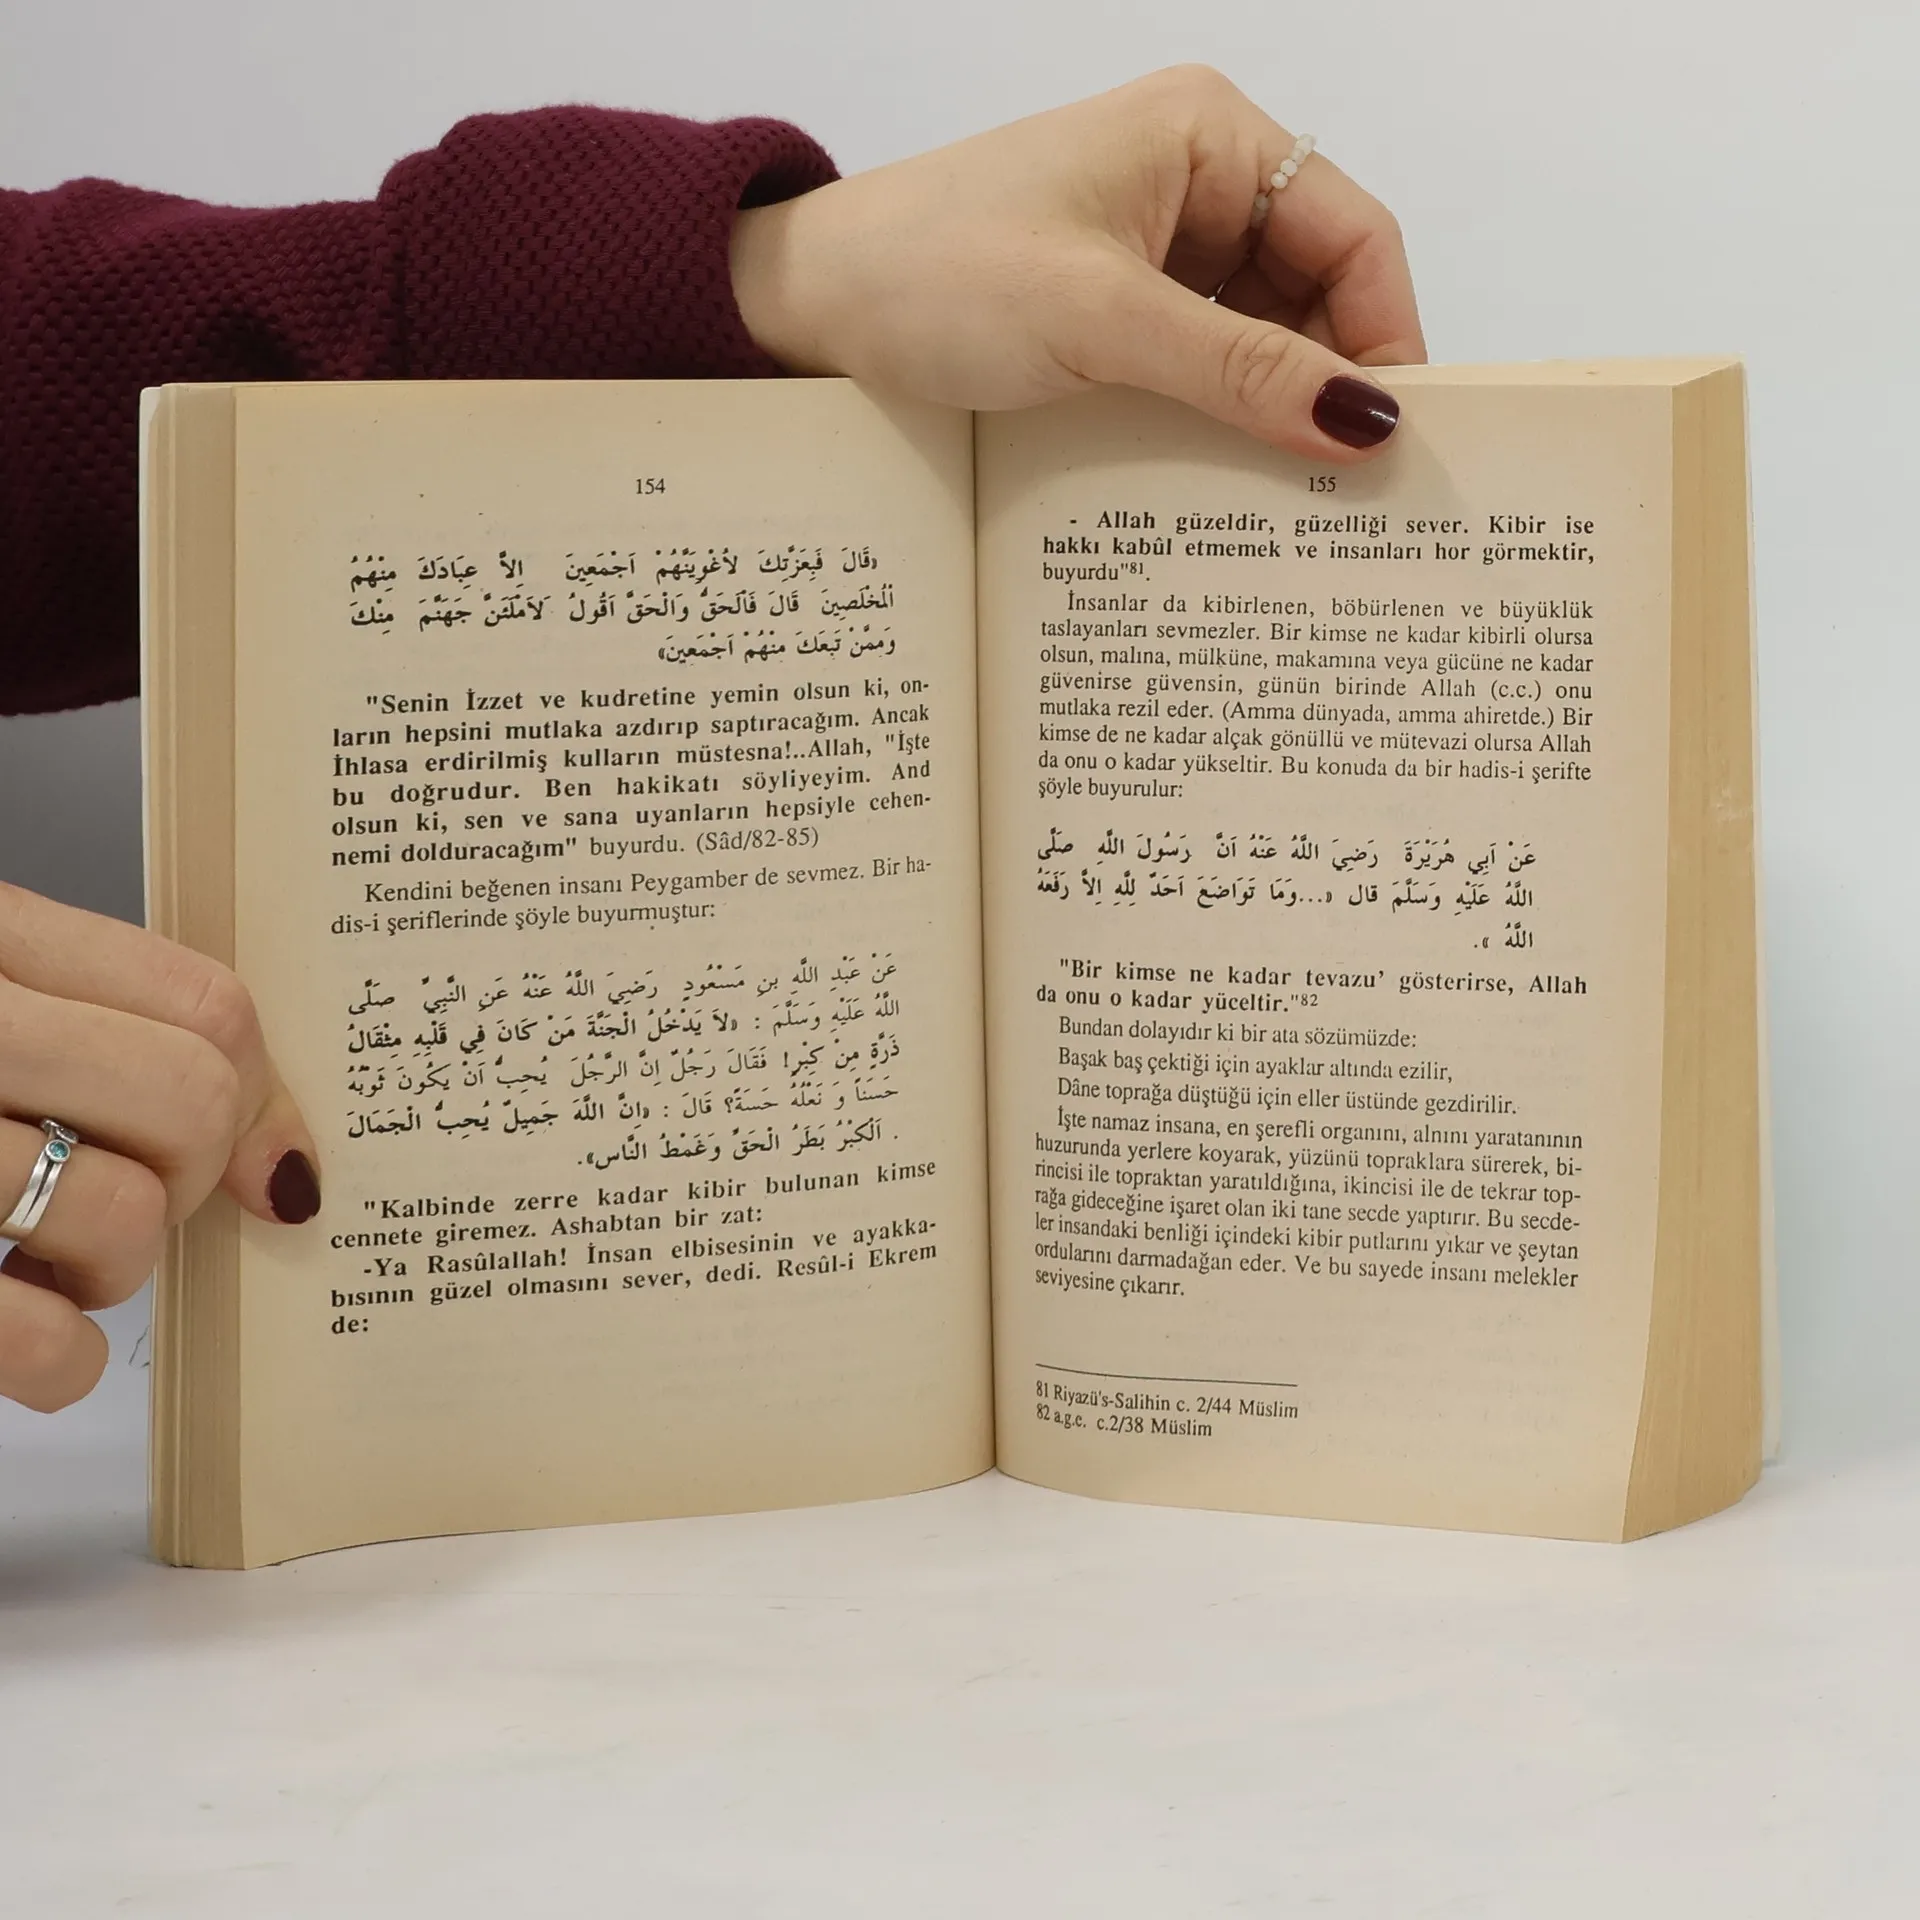 154
«قَالَ فَبِعِزَّتِكَ لَأُغْوِيَنَّهُمْ اَجْمَعِينَ اِلاَّ عِبَادَكَ مِنْهُمُ
الْمُخْلَصِينَ قَالَ فَالْحَقُّ وَالْحَقَّ اَقُولُ لَاَمْلَئَنَّ جَهَنَّمَ مِنْكَ
وَمِمَّنْ تَبِعَكَ مِنْهُمْ اَجْمَعِينَ»
"Senin İzzet ve kudretine yemin olsun ki, on-
ların hepsini mutlaka azdırıp saptıracağım. Ancak
İhlasa erdirilmiş kulların müstesna!..Allah, "İşte
bu doğrudur. Ben hakikatı söyliyeyim. And
olsun ki, sen ve sana uyanların hepsiyle cehen-
nemi dolduracağım" buyurdu. (Sâd/82-85)
Kendini beğenen insanı Peygamber de sevmez. Bir ha-
dis-i şeriflerinde şöyle buyurmuştur:
عَنْ عَبْدِ اللَّهِ بنِ مَسْعُودٍ رَضِيَ اللَّهُ عَنْهُ عَنِ النَّبِيِّ صَلَّى
اللَّهُ عَلَيْهِ وَسَلَّمَ : «لاَ يَدْخُلُ الْجَنَّةَ مَنْ كَانَ فِي قَلْبِهِ مِثْقَالُ
ذَرَّةٍ مِنْ كِبْرٍ! فَقَالَ رَجُلٌ اِنَّ الرَّجُلَ يُحِبُّ اَنْ يَكُونَ ثَوْبُهُ
حَسَنَاً وَ نَعْلُهُ حَسَةً؟ قَالَ : «اِنَّ اللَّهَ جَمِيلٌ يُحِبُّ الْجَمَالَ
. اَلْكِبْرُ بَطَرُ الْحَقِّ وَغَمْطُ النَّاسِ».
"Kalbinde zerre kadar kibir bulunan kimse
cennete giremez. Ashabtan bir zat:
-Ya Rasûlallah! İnsan elbisesinin ve ayakka-
bısının güzel olmasını sever, dedi. Resûl-i Ekrem
de:
155
- Allah güzeldir, güzelliği sever. Kibir ise
hakkı kabûl etmemek ve insanları hor görmektir,
buyurdu"81.
İnsanlar da kibirlenen, böbürlenen ve büyüklük
taslayanları sevmezler. Bir kimse ne kadar kibirli olursa
olsun, malına, mülküne, makamına veya gücüne ne kadar
güvenirse güvensin, günün birinde Allah (c.c.) onu
mutlaka rezil eder. (Amma dünyada, amma ahiretde.) Bir
kimse de ne kadar alçak gönüllü ve mütevazi olursa Allah
da onu o kadar yükseltir. Bu konuda da bir hadis-i şerifte
şöyle buyurulur:
عَنْ اَبِي هُرَيْرَةَ رَضِيَ اللَّهُ عَنْهُ اَنَّ رَسُولَ اللَّهِ صَلَّى
اللَّهُ عَلَيْهِ وَسَلَّمَ قال «...وَمَا تَوَاضَعَ اَحَدٌ لِلَّهِ اِلاَّ رَفَعَهُ
اللَّهُ ».
"Bir kimse ne kadar tevazu' gösterirse, Allah
da onu o kadar yüceltir."82
Bundan dolayıdır ki bir ata sözümüzde:
Başak baş çektiği için ayaklar altında ezilir,
Dâne toprağa düştüğü için eller üstünde gezdirilir.
İşte namaz insana, en şerefli organını, alnını yaratanının
huzurunda yerlere koyarak, yüzünü topraklara sürerek, bi-
rincisi ile topraktan yaratıldığına, ikincisi ile de tekrar top-
rağa gideceğine işaret olan iki tane secde yaptırır. Bu secde-
ler insandaki benliği içindeki kibir putlarını yıkar ve şeytan
ordularını darmadağan eder. Ve bu sayede insanı melekler
seviyesine çıkarır.
81 Riyazü's-Salihin c. 2/44 Müslim
82 a.g.e. c.2/38 Müslim